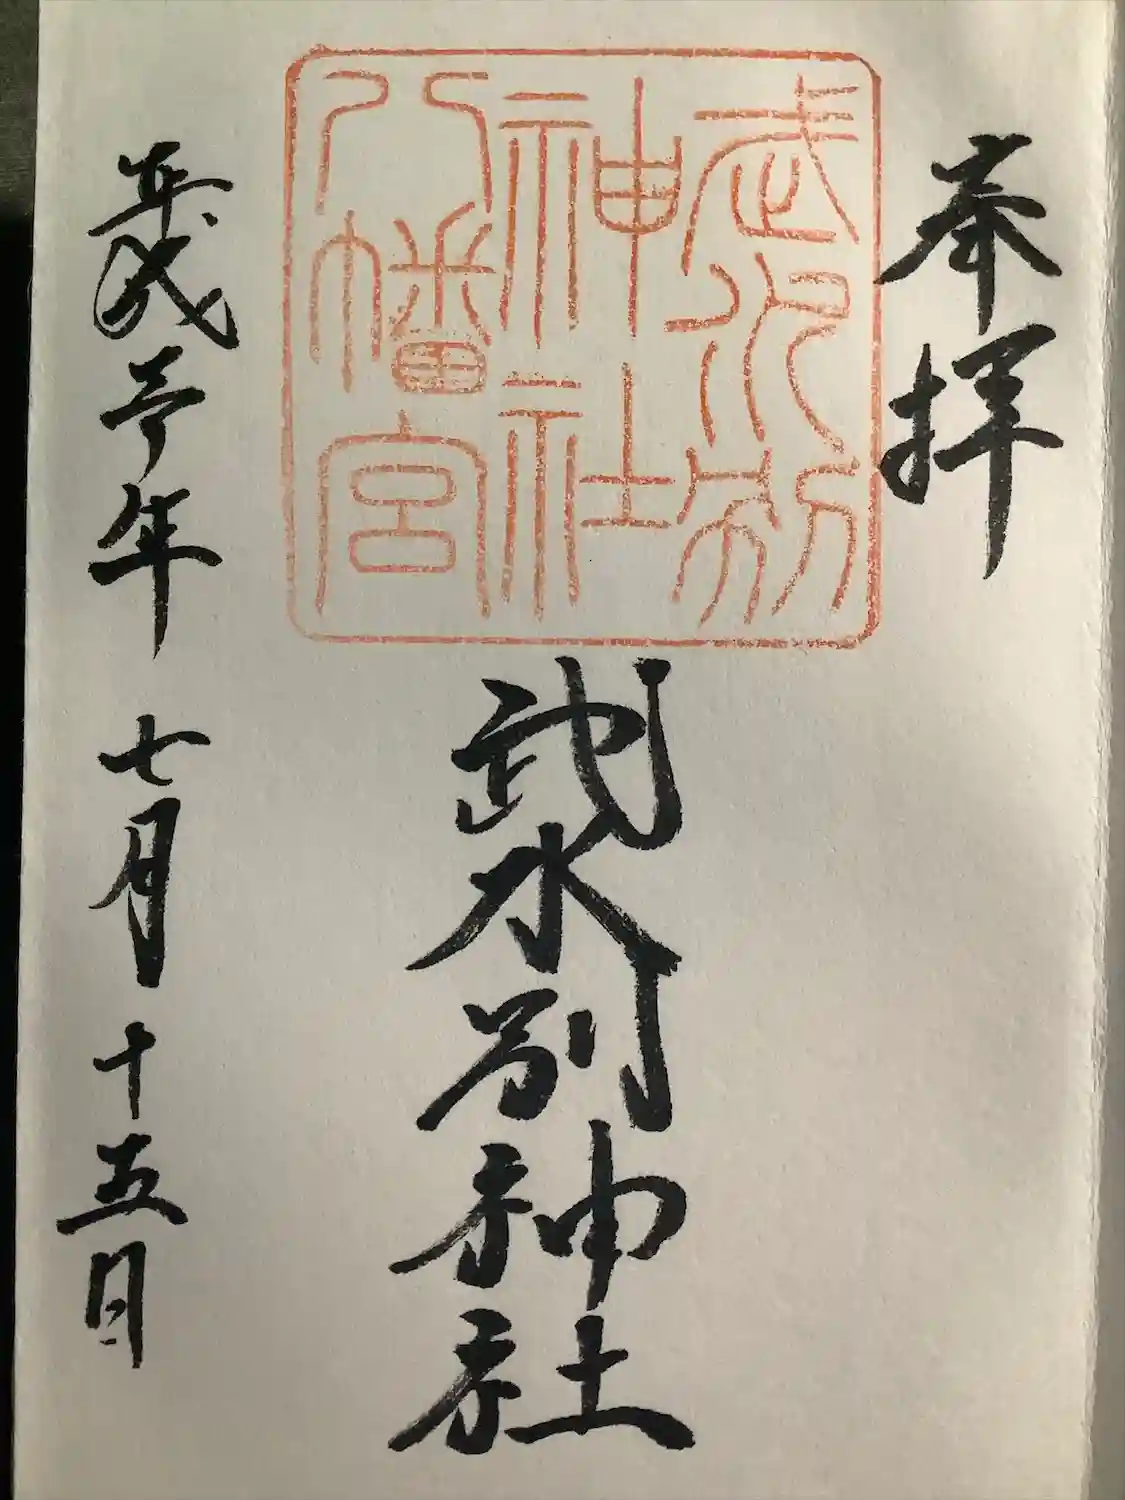 奉拝
武水別
神社
八幡宮
武水別神社
平成
年
七月
十五日